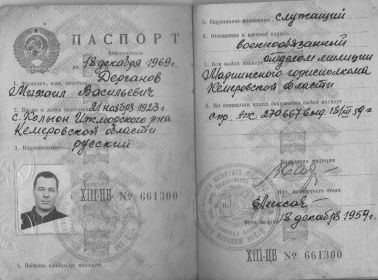 ПАСПОРТ
Действителен
по 18 декабря 1969г.
1. Фамилия, имя, отчество
Дерганов
Михаил Васильевич
2. Время и место рождения 21 ноября 1923 г.
с. Колыон Ижморского р-на
Кемеровской области
3. Национальность
русский
XIII-ЦВ № 661300
4. Подпись владельца паспорта
5. Социальное положение служащий
6. Отношение к военной службе
военнообязанный
7. Кем выдан паспорт отделом милиции
Мариинского горисполкома
Кемеровской области
8. На основании каких документов выдан паспорт
270667 выд
Начальник милиции
Нач. паспортного стола
18 декабря 1959г.
XIII-ЦВ № 661300